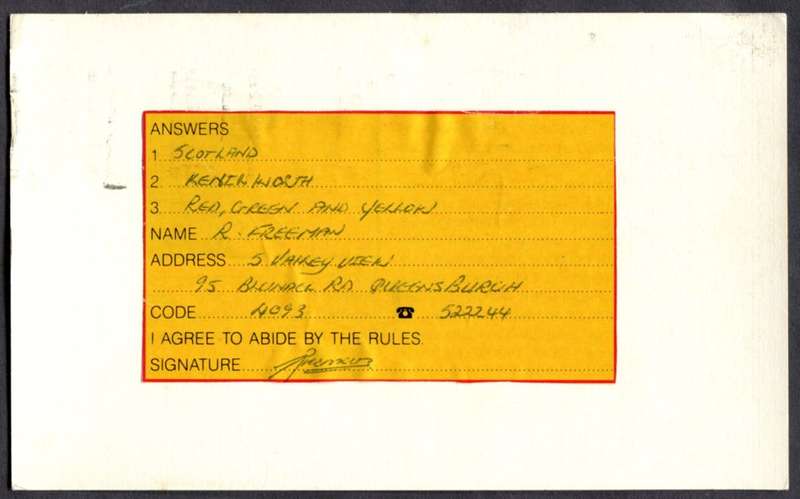 ANSWERS
1 SCOTLAND
2 KENILWORTH
3 RED, GREEN AND YELLOW
NAME R. FREEMAN
ADDRESS 5 VALLEY VIEW
95 RD QUEENSBURGH
CODE 4093 ☎ 522244
I AGREE TO ABIDE BY THE RULES.
SIGNATURE